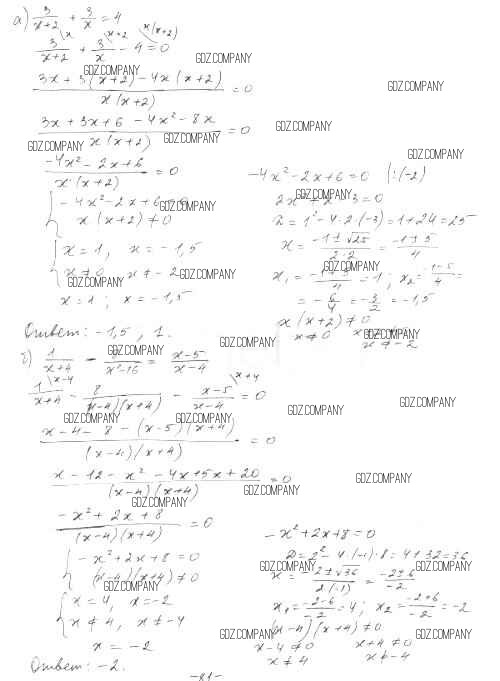 а) 3/(x+2) + 3/x = 4
3/(x+2) \x + 3/x \x+2 - 4 \x(x+2) = 0
(3x + 3(x+2) - 4x(x+2)) / (x(x+2)) = 0
(3x + 3x + 6 - 4x² - 8x) / (x(x+2)) = 0
(-4x² - 2x + 6) / (x(x+2)) = 0
{ -4x² - 2x + 6 = 0
x(x+2) ≠ 0
{ x = 1, x = -1,5
x ≠ 0 x ≠ -2
x = 1; x = -1,5
-4x² - 2x + 6 = 0 (:(-2)
2x² + x - 3 = 0
D = 1² - 4·2·(-3) = 1 + 24 = 25
x = (-1 ± √25)/(2·2) = (-1 ± 5)/4
x₁ = (-1+5)/4 = 1; x₂ = (-1-5)/4 =
= -6/4 = -3/2 = -1,5
x(x+2) ≠ 0
x ≠ 0
x ≠ -2
Ответ: -1,5, 1.
б) 1/(x+4) - 8/(x²-16) = (x-5)/(x-4)
1/(x+4) \x-4 - 8/((x-4)(x+4)) - (x-5)/(x-4) \x+4 = 0
(x - 4 - 8 - (x-5)(x+4)) / ((x-4)(x+4)) = 0
(x - 12 - x² - 4x + 5x + 20) / ((x-4)(x+4)) = 0
(-x² + 2x + 8) / ((x-4)(x+4)) = 0
{ -x² + 2x + 8 = 0
(x-4)(x+4) ≠ 0
{ x = 4, x = -2
x ≠ 4, x ≠ -4
x = -2
-x² + 2x + 8 = 0
D = 2² - 4·(-1)·8 = 4 + 32 = 36
x = (-2 ± √36)/(2·(-1)) = (-2 ± 6)/-2
x₁ = (-2-6)/-2 = 4; x₂ = (-2+6)/-2 = -2
(x-4)(x+4) ≠ 0
x - 4 ≠ 0 x + 4 ≠ 0
x ≠ 4 x ≠ -4
Ответ: -2.
-81-
GDZ.COMPANY